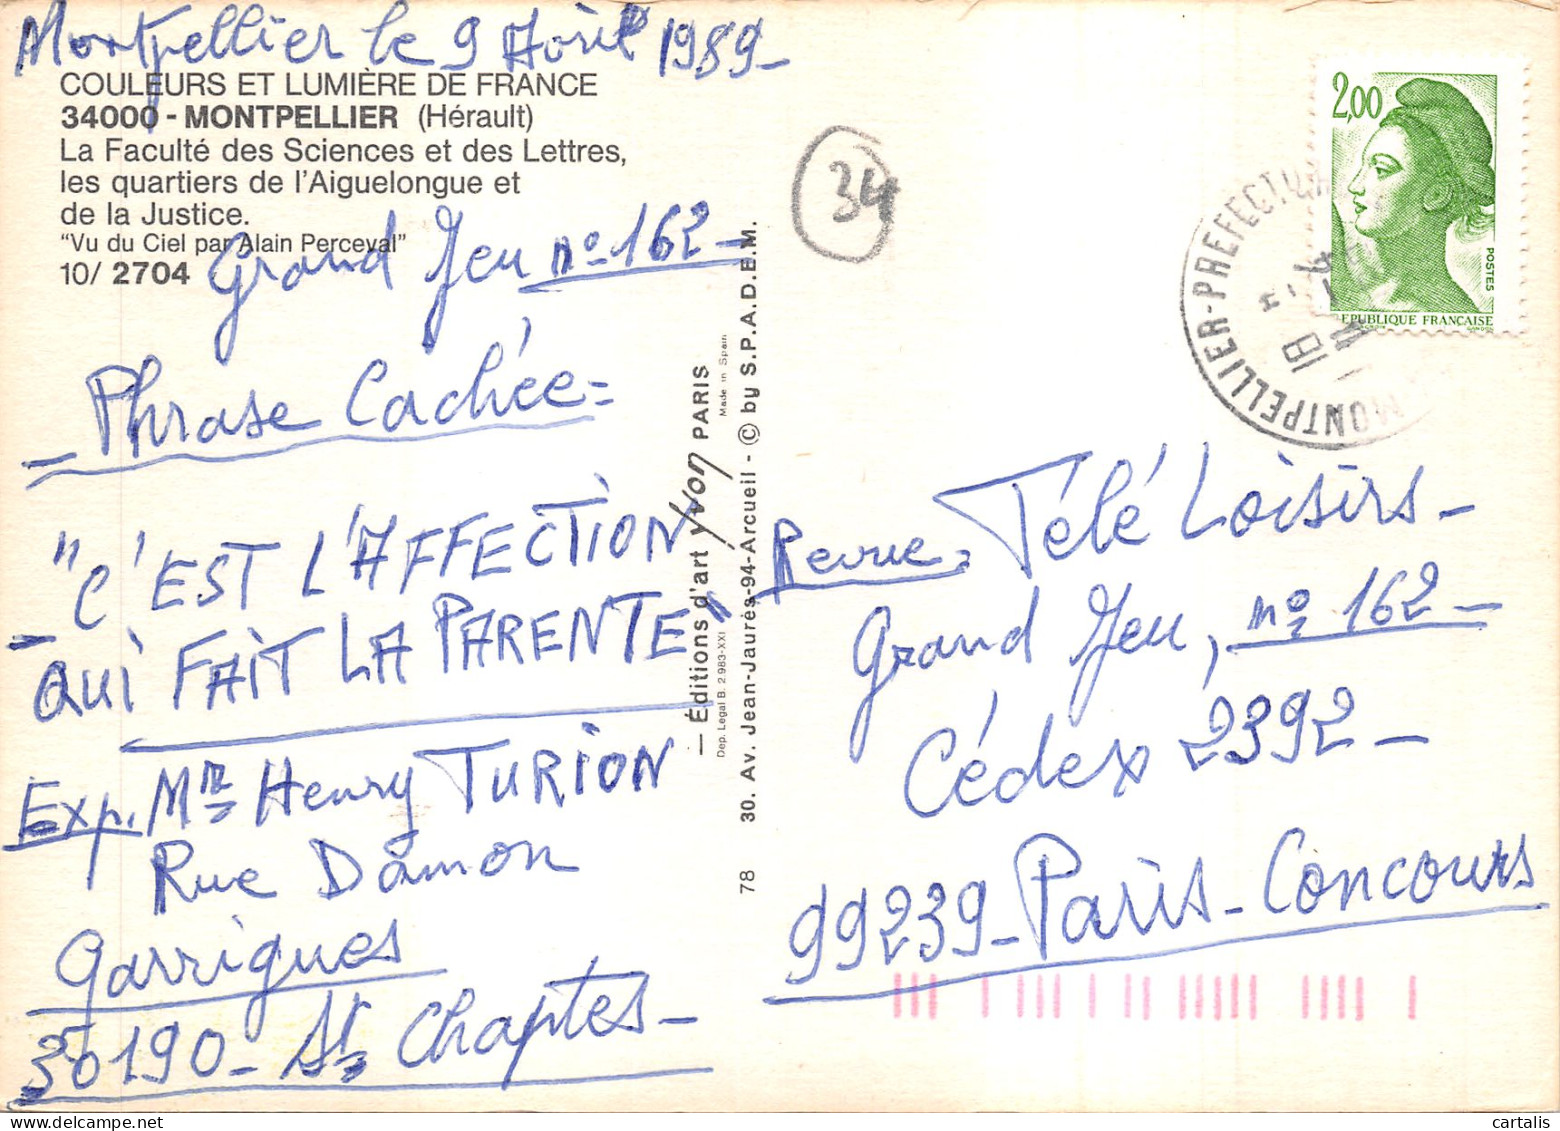 Montpellier le 9 Avril 1989-
COULEURS ET LUMIÈRE DE FRANCE
34000 - MONTPELLIER (Hérault)
La Faculté des Sciences et des Lettres,
les quartiers de l'Aiguelongue et
de la Justice.
"Vu du Ciel par Alain Perceval"
10/ 2704
Grand Jeu nº 162-
- Phrase Cachée=
"C'EST L'AFFECTION
QUI FAIT LA PARENTE"
Exp. Mr Henry TURION
Rue Damon
Garrigues
30190 - St Chaptes-
— Éditions d'art yvon PARIS
Made in Spain
Dep. Legal B. 2.983-XXI
78 30. Av. Jean-Jaurès-94-Arcueil - © by S.P.A.D.E.M.
34
2,00
POSTES
REPUBLIQUE FRANÇAISE
GANDON
MONTPELLIER-PREFECTURE
Revue = Télé Loisirs-
Grand Jeu, nº 162-
Cédex 2392-
99239-Paris-Concours
cartalis